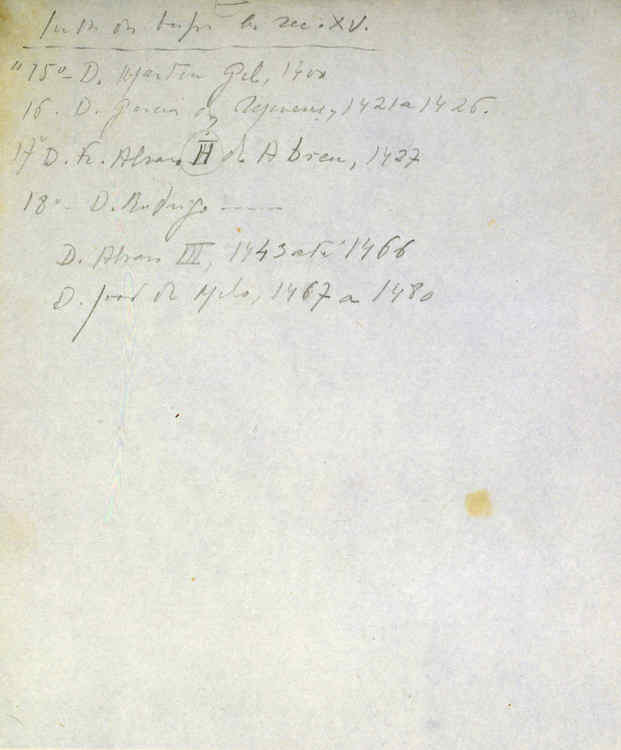 do sec. XV.
"15º - D. Martin Gil, 1400
16. D. Garcia de Menezes, 1421 a 1426.
17º D. Fr. Alvaro II de Abreu, 1427
18º - D. Rodrigo -----
D. Alvaro III, 1443 até 1466
D. João de Melo, 1467 a 1480